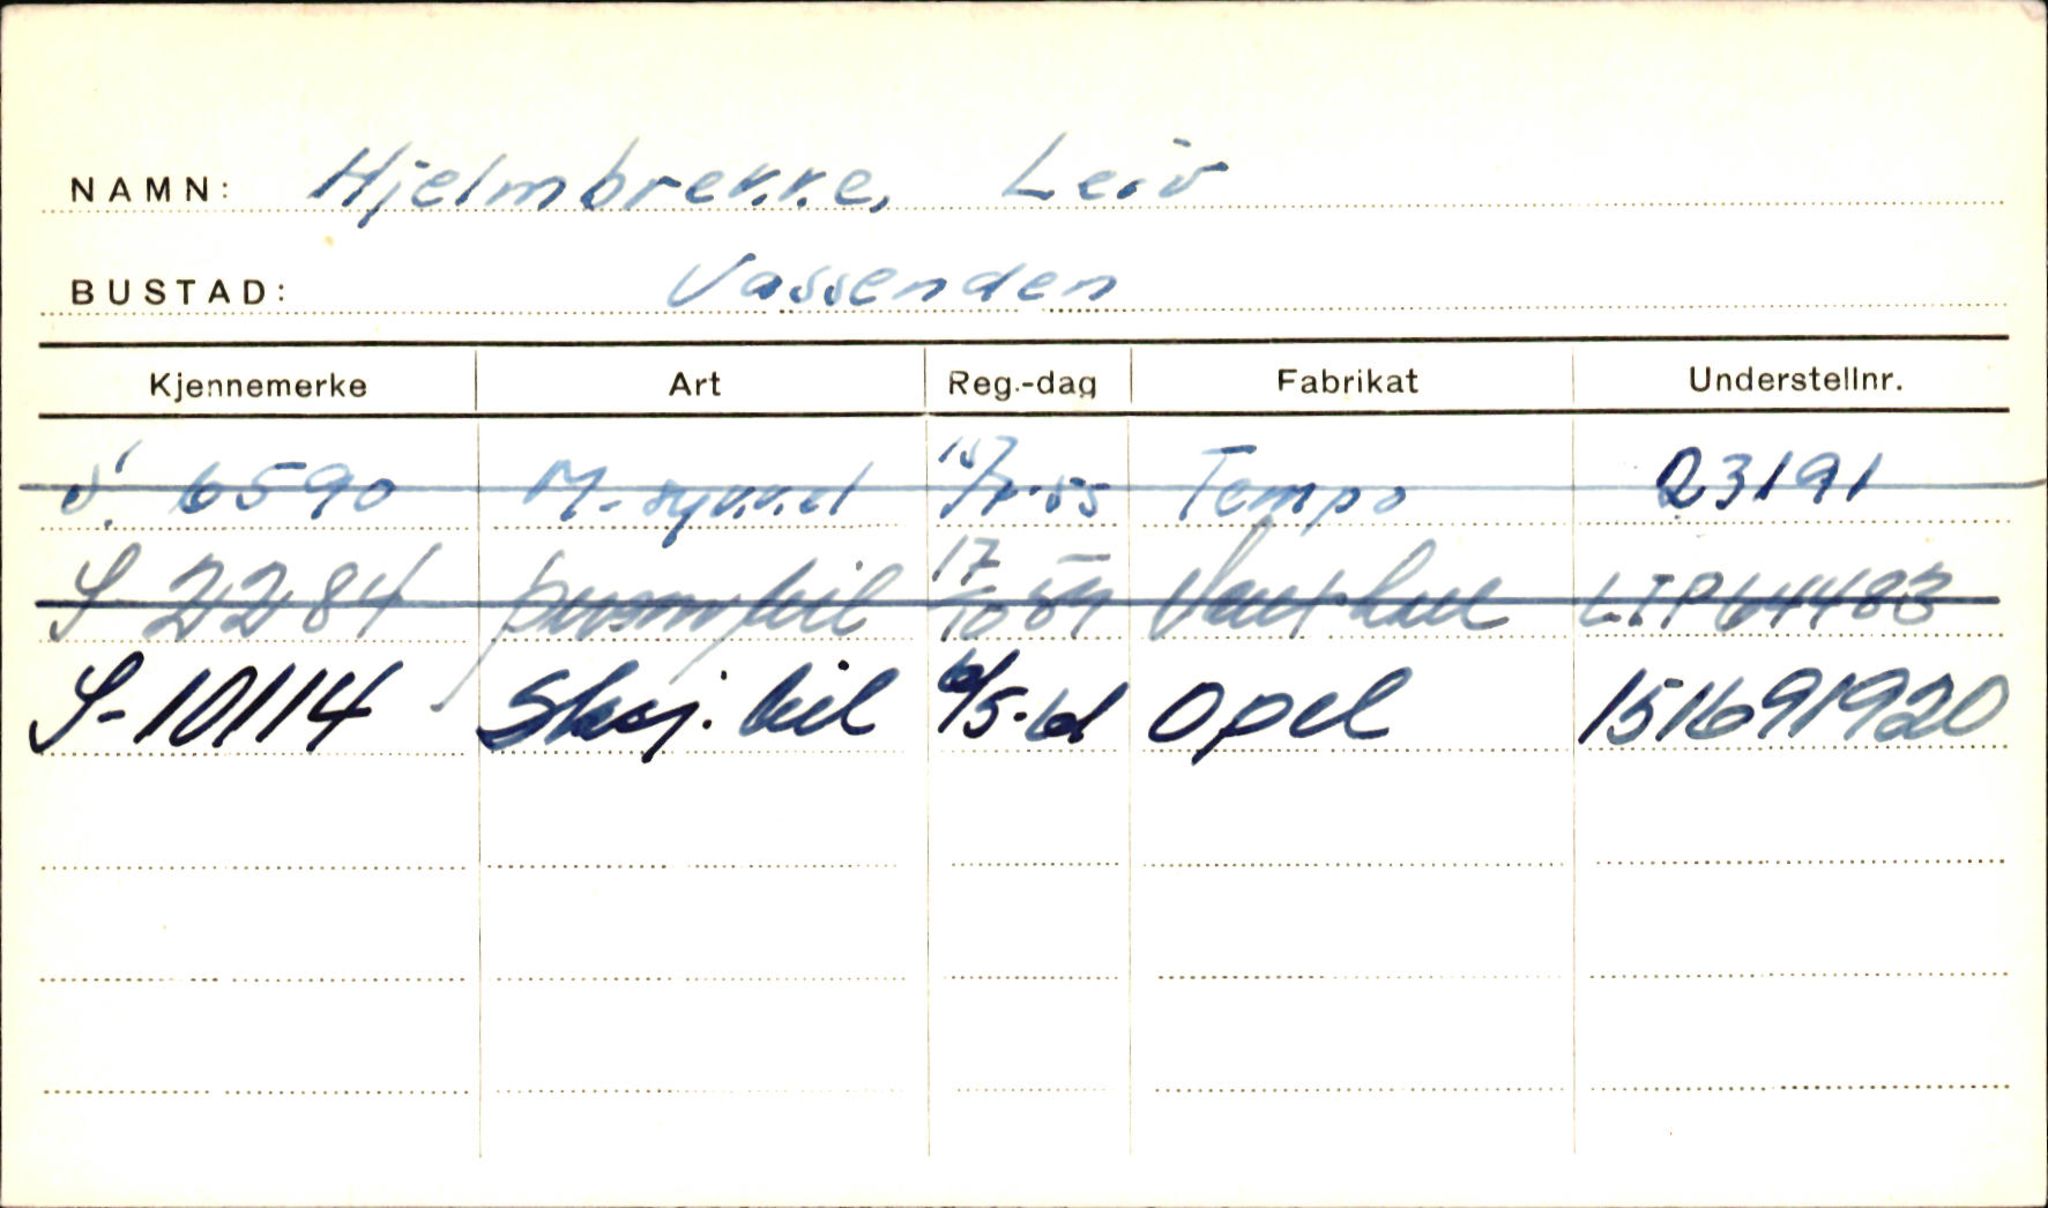 NAMN: Hjelmbrekke, Leiv
BUSTAD: Vassenden
Kjennemerke Art Reg.-dag Fabrikat Understellnr.
S. 6590 M-sykkel Tempo 23191
S 2284 personbil 17/10 59 Vauxhall LIP64483
S-10114 Skaj. bil Opel 151691920